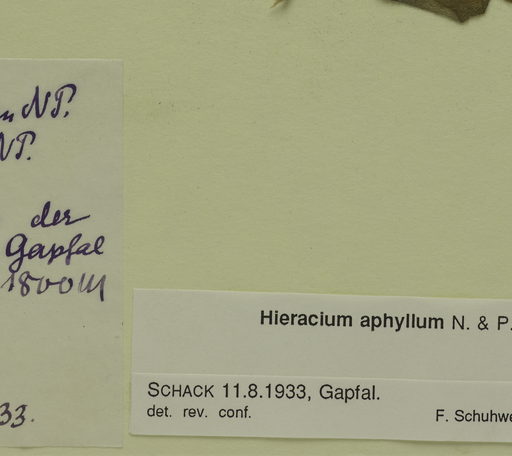 NP.
NP.
der
Gapfal
1800m
33.
Hieracium aphyllum N. & P.
SCHACK 11.8.1933, Gapfal.
det. rev. conf.
F. Schuhwe